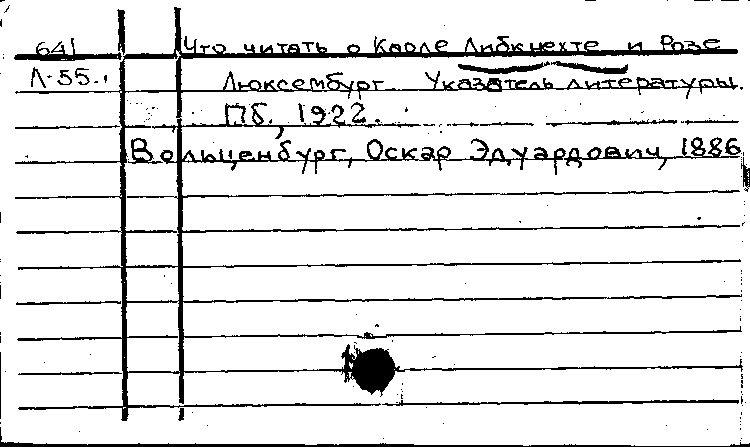 641 Что читать о Карле Либкнехте и Розе
Л-55. Люксембург. Указатель литературы.
Пб., 1922.
Вольценбург, Оскар Эдуардович, 1886